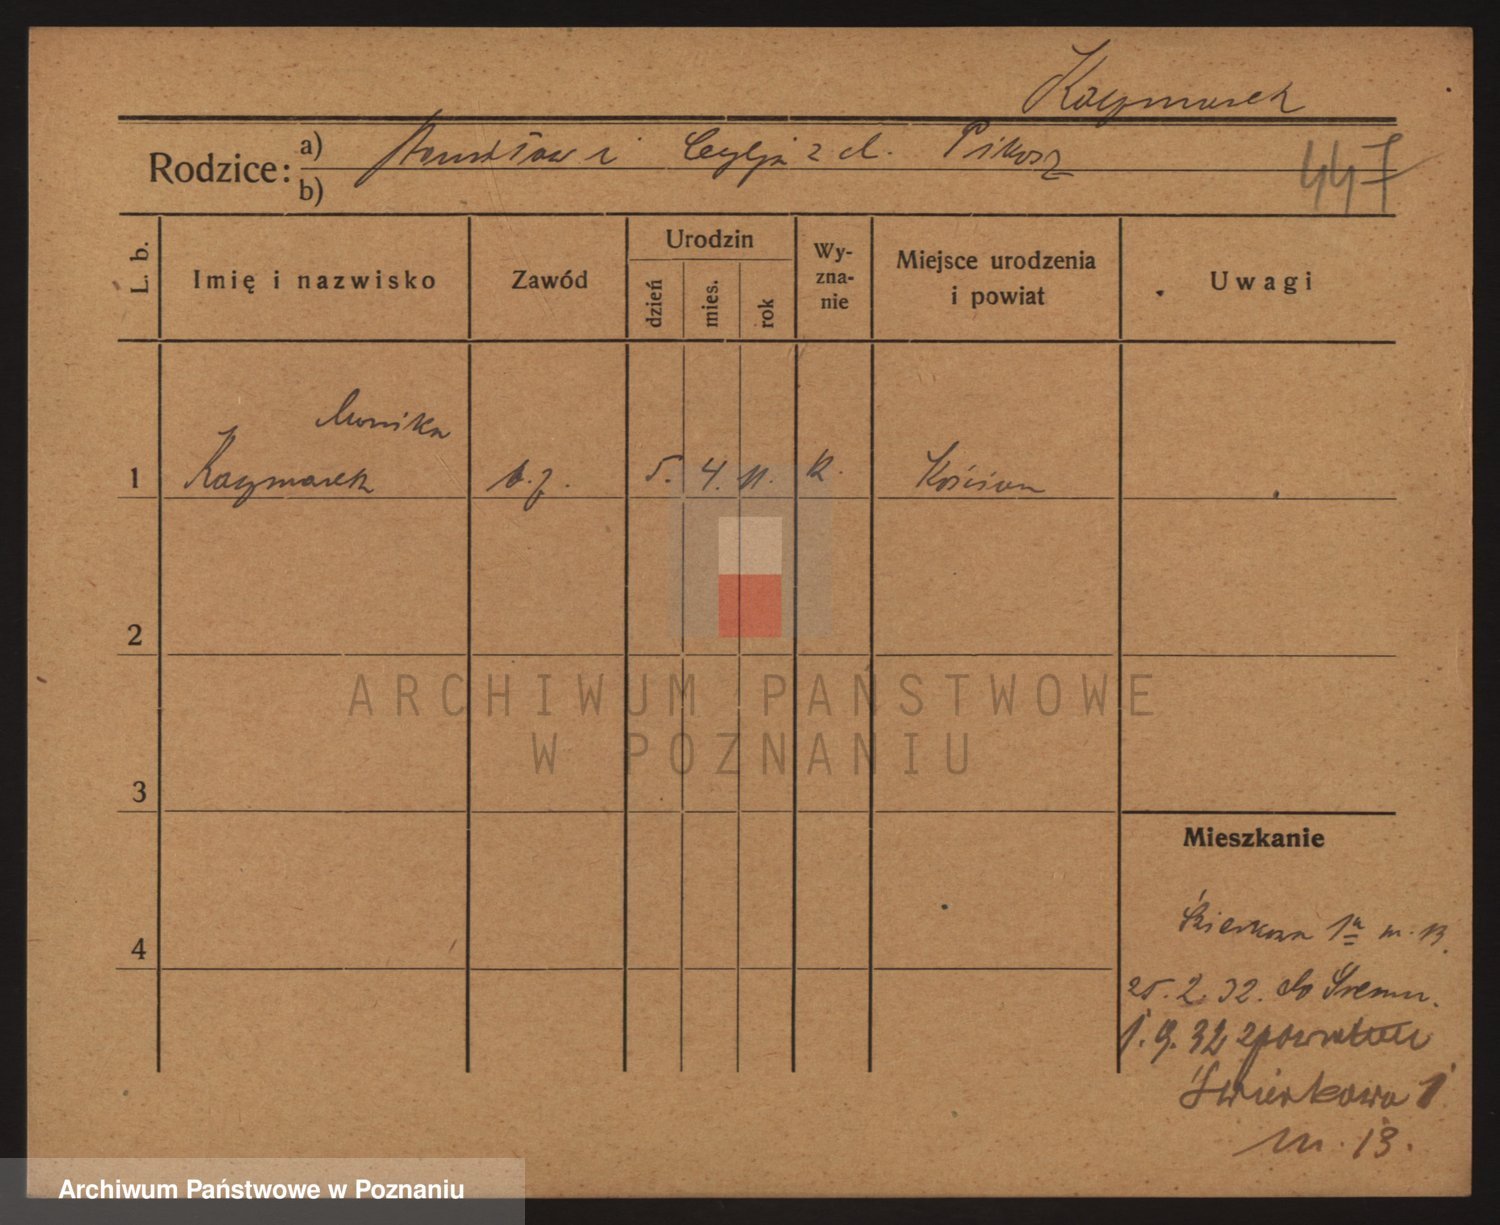 Kaczmarek
Rodzice: a) Stanisław i Cecylja z d. Pikosz
b)
447
L. b.
Imię i nazwisko
Zawód
Urodzin
dzień
mies.
rok
Wy-
zna-
nie
Miejsce urodzenia
i powiat
Uwagi
Monika
1 Kaczmarek b. z. 5. 4. 11. k. Kościan
2
3
4
ARCHIWUM PAŃSTWOWE
W POZNANIU
Mieszkanie
1a m. 13.
25. 2. 32. do Śremu.
1. 9. 32 zpowrotem
Świerkowa 1
m. 13.
Archiwum Państwowe w Poznaniu